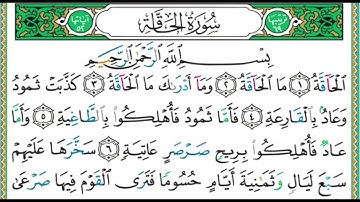 ترتيبها ٦٩ سُورَةُ الْحَاقَّةِ آياتها ٥٢
بِسْمِ اللَّهِ الرَّحْمَٰنِ الرَّحِيمِ
الْحَاقَّةُ ١ مَا الْحَاقَّةُ ٢ وَمَا أَدْرَىٰكَ مَا الْحَاقَّةُ ٣ كَذَّبَتْ ثَمُودُ
وَعَادٌ بِالْقَارِعَةِ ٤ فَأَمَّا ثَمُودُ فَأُهْلِكُوا بِالطَّاغِيَةِ ٥ وَأَمَّا
عَادٌ فَأُهْلِكُوا بِرِيحٍ صَرْصَرٍ عَاتِيَةٍ ٦ سَخَّرَهَا عَلَيْهِمْ
سَبْعَ لَيَالٍ وَثَمَٰنِيَةَ أَيَّامٍ حُسُومًا فَتَرَى الْقَوْمَ فِيهَا صَرْعَىٰ